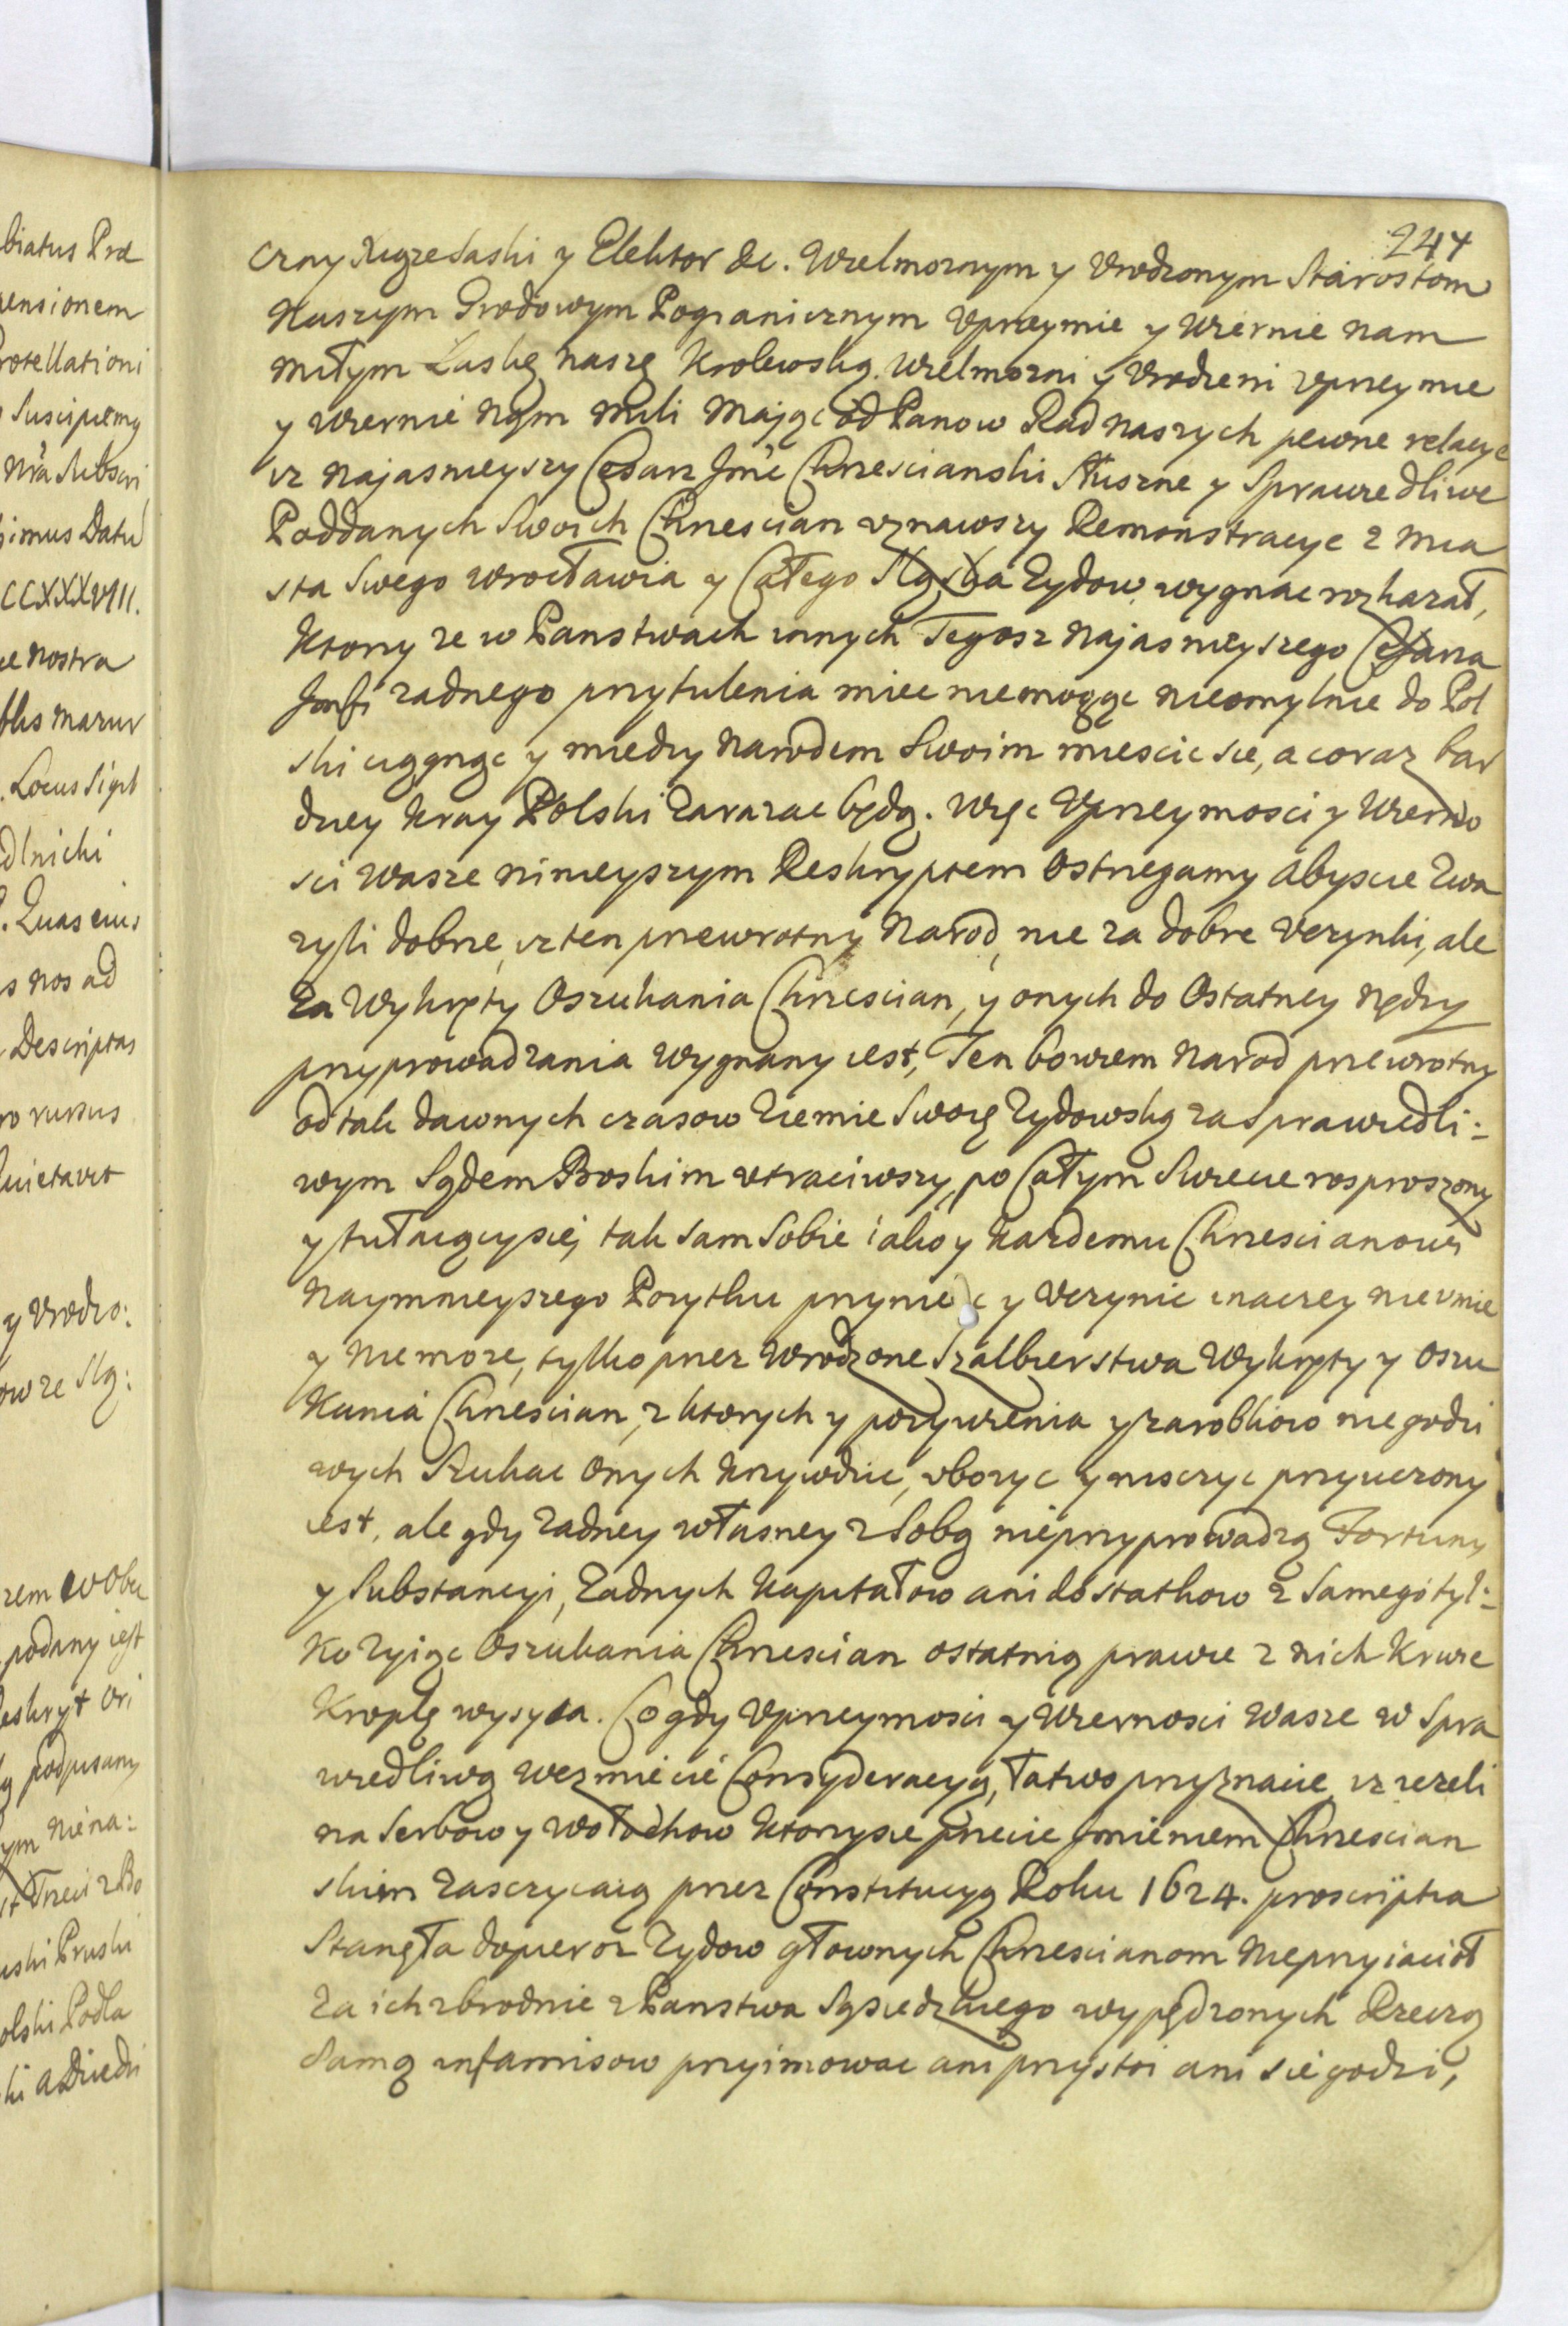 biatus Præ
ensionem
rotellationi
Suscipiemy
nr̃a Subscri
imus Datũ
CCXXXVIII.
e nostra
Locus Sigil
dlnicki
Quas eius
s nos ad
Descriptas
ro rursus
y Vrodzo:
ow ze Slą:
zem w Obec
podany iest
podpisany
ym niena:
Trzeci z Bo
uski Pruski
olski Podla
ki a Dziedzi
244
czny Xiąże Saski y Elektor &c. Wielmoznym y Vrodzonym Starostom
Naszym Grodowym Pogranicznym Vprzeymie y Wiernie nam
miłym Łaskę naszę Krolewską. Wielmozni y Vrodzeni vprzeymie
y Wiernie nąm mili Maiąc od Panow Rad naszych pewne relacye
iz Najasnieyszy Cesarz Jmć Chrzescianski Słuszne y Sprawiedliwe
Poddanych Swoich Chrzescian vznawszy Remonstracye z mia
sta Swego Wrocławia y Całego Sląska Zydow wygnac rozkazał,
Ktorzy ze w Panstwach innych Tegosz Najasnieyszego Cesarza
Jmści zadnego przytulenia miec niemogąc nieomylnie do Pol
ski ciągnąc y miedzy Narodem Swoim miescic sie, a coraz bar
dziey Kray Polski Zarazac będą. Więc Vprzeymosci y Wierno
sci Wasze ninieyszym Reskryptem Ostrzegamy Abyscie Zwa
zyli dobrze, iz ten przewrotny Narod, nie za dobre Vczynki, ale
za Wykręty Oszukania Chrzescian, y onych do Ostatniey nędzy
przyprowadzania Wygnany iest, Ten bowiem Narod przewrotny
od tak dawnych czasow Ziemie Swoię Zydowską za Sprawiedli:
wym Sądem Boskim vtraciwszy, po Całym Swiecie rosproszony
y tułaiący sie, tak sam Sobie iako y Kazdemu Chrzescianowi
Naymnieyszego Pozytku przyniesc y Vczynic inaczey nie vmie
y nie moze, tylko przez Wrodzone Szalbierstwa Wykręty y Oszu
Kania Chrzescian, z ktorych y pozywienia y zarobkow niegodzi
wych Szukac Onych Krzywdzic, vbozyc y niszczyc przyuczony
iest, ale gdy zadney własney z Sobą nieprzyprowadzą Fortuny
y Substancyi, Zadnych Kapitałow ani dostatkow z Samego tyl:
Ko Zyiąc Oszukania Chrzescian ostatnią prawie z nich Krwie
Kroplę wysysa. Co gdy Vprzeymosci y Wiernosci Wasze w Spra
wiedliwą wezmiecie Consyderacyą, łatwo przyznacie iz iezeli
na Serbow y Wołochow Ktorzy sie przecie Jmieniem Chrzescian
skim zaszczycaią przez Constitucyą Roku 1624. proscriptia
Stanęła dopieroz Zydow głownych Chrzescianom Nieprzyiacioł
za ich zbrodnie z Panstwa Sąsiedzkiego wypędzonych Rzeczą
Samą infamisow przyimowac ani przystoi ani sie godzi,